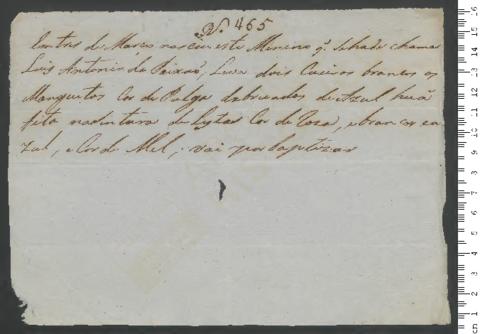 N. 465
Em tres de Março nasceu este Menino q. se hade chamar
Luis Antonio da Paixaõ, Leva dois Cueiros brancos os
Manguitos Cor de Pulga debruados de Azul huã
fita na sintura de Listas Cor de Roza, e branco e a
zul, e Cor de Mel, vai por baptizar